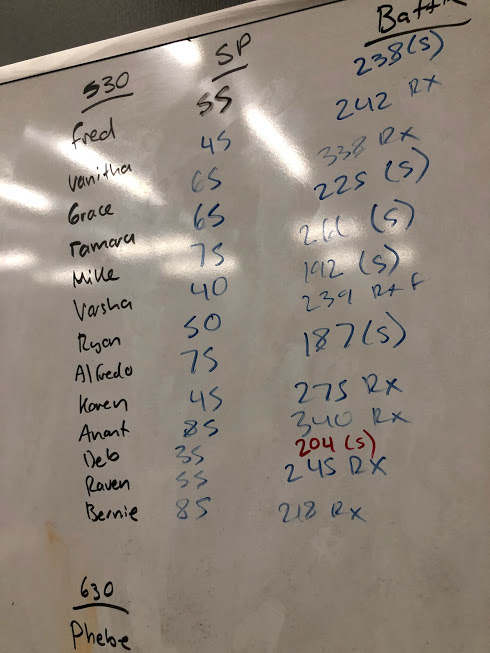 530 SP
Fred 55 238(s)
Vanitha 45 242 Rx
Grace 65 338 Rx
Tamara 65 225 (s)
Mike 75 (s)
Varsha 40 192 (s)
Ryan 50 239 Rx F
Alfredo 75 187(s)
Karen 45 275 Rx
Anant 85 340 Rx
Deb 35 204 (s)
Raven 55 245 Rx
Bernie 85 218 Rx
630
Phebe